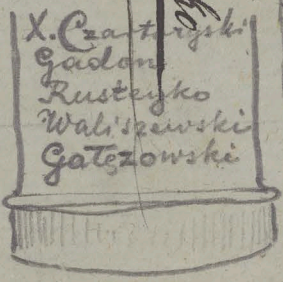 X. Czartoryski
Gadon
Rusteyko
Waliszewski
Gałęzowski